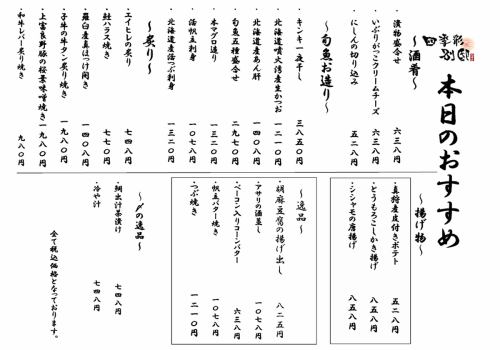 本日のおすすめ
～酒肴～
・漬物盛合せ 六三八円
・いぶりがっこクリームチーズ 六三八円
・にしんの切り込み 五二八円
～旬魚お造り～
・キンキ一夜干し 三八五〇円
・北海道噴火湾産生かつお 一二一〇円
・北海道産あん肝 一四〇八円
・旬魚五種盛合せ 二九七〇円
・本マグロ造り 一三二〇円
・活帆立刺身 一〇七八円
・北海道産活つぶ刺身 一三二〇円
～炙り～
・エイヒレの炙り 七四八円
・鮭ハラス焼き 七七〇円
・羅臼産真ほっけ開き 一四〇八円
・子牛の牛タン炙り焼き 一九八〇円
・上富良野豚の桜葉味噌焼き 一九八〇円
・和牛レバー炙り焼き 九八〇円
～揚げ物～
・真狩産皮付きポテト 五二八円
・とうもろこしかき揚げ 八五八円
・シシャモの唐揚げ 八五八円
～逸品～
・胡麻豆腐の揚げ出し 八二五円
・アサリの酒蒸し 一〇七八円
・ベーコン入りコーンバター 六三八円
・帆立バター焼き 一〇七八円
・つぶ焼き 一二一〇円
～〆の逸品～
・鯛出汁茶漬け 七四八円
・冷や汁 七四八円
全て税込価格となっております。